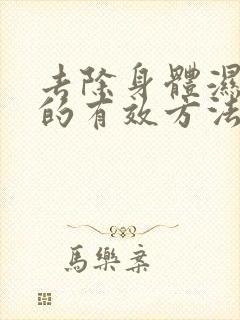 去除身體濕
的有效方法
馬樂案